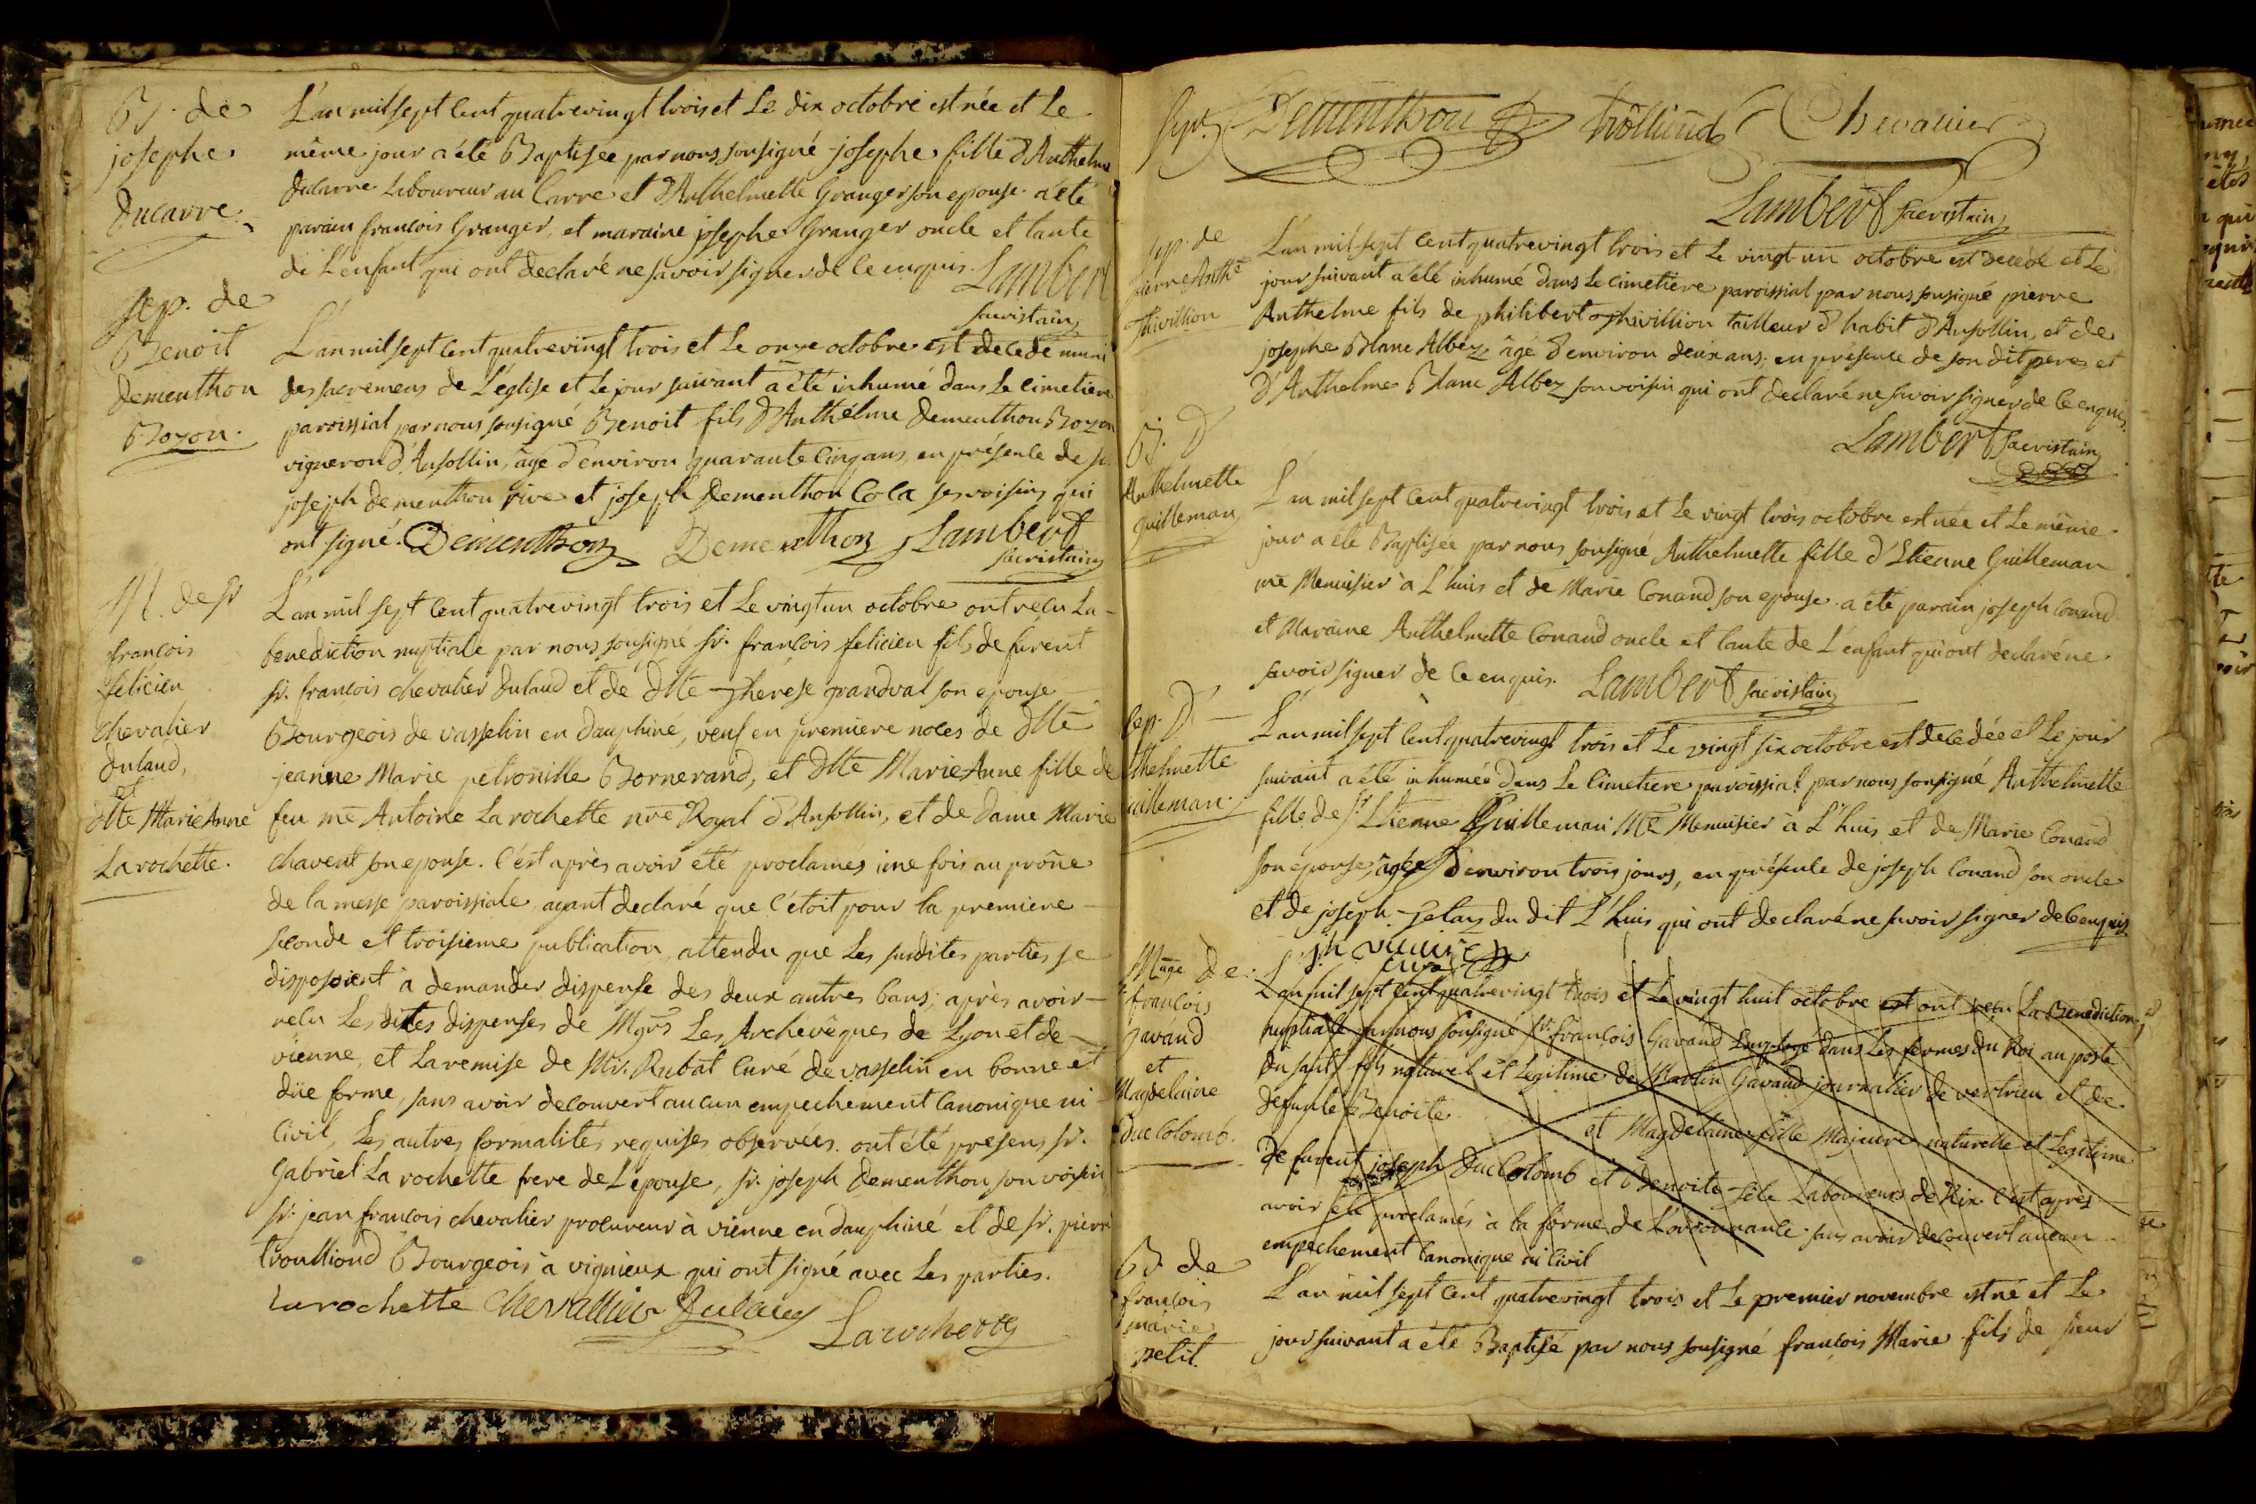 B. de
josephe
ducarre.
L'an mil sept cent quatrevingt trois et Le dix octobre est née et Le
même jour a été Baptisée par nous sousigné josephe fille d'Anthelme
ducarre Laboureur au Carre et d'Anthelmette Granger son epouse. a été
parain françois Granger, et maraine josephe Granger oncle et tante
de L'enfant qui ont declaré ne savoir signer de ce enquis. Lambert
sacristain
sep. de
Benoit
dementhon
Bozon.
L'an mil sept cent quatrevingt trois et Le onze octobre est decedé muni
des sacremens de L'église et Le jour suivant a été inhumé dans Le cimetiere
paroissial par nous sousigné Benoit fils d'Anthelme dementhon Bozon
vigneron d'Ansollin, âgé d'environ quarante cinq ans, en présence de sr.
joseph dementhon rive et joseph dementhon Cola ses voisins qui
ont signé. Dementhon Dementhon Lambert
sacristain
M. de sr
françois
felicien
chevalier
dulaud,
et
dlle Marie Anne
La rochette.
L'an mil sept cent quatrevingt trois et Le vingtun octobre ont reçu La
benediction nuptiale par nous sousigné sr. françois felicien fils de furent
sr. françois chevalier dulaud et de dlle Therese grandval son epouse
Bourgeois de vasselin en dauphiné, veuf en premiere noces de dlle
jeanne Marie petronille Bornerand, et dlle Marie Anne fille de
feu me Antoine La rochette nre Royal d'Ansollin, et de dame Marie
chavent son epouse. C'est après avoir été proclamés une fois au prône
de la messe paroissiale, ayant declaré que c'étoit pour la premiere
seconde et troisieme publication, attendu que Les susdites parties se
disposoient à demander dispense des deux autres bans; après avoir
reçu Les dites dispenses de Mgrs Les Archevêques de Lyon et de
vienne, et La remise de Mr. Rubat Curé de vasselin en bonne et
düe forme, sans avoir decouvert aucun empechement Canonique ni
Civil, Les autres formalités requises observées. ont été presens sr.
Gabriel La rochette frere de L'epouse, sr. joseph dementhon son voisin
sr. jean françois chevalier procureur à vienne en dauphiné et de sr. pierre
trouilloud Bourgeois à vignieux qui ont signé avec Les parties.
Larochette Chevallier Dulaud Larochette
Dementhon trolliund Chevalier
Lambert sacristain
sep. de
pierre Anthe
Thivillion
L'an mil sept cent quatrevingt trois et Le vingt un octobre est decedé et Le
jour suivant a été inhumé dans Le cimetière paroissial par nous sousigné pierre
Anthelme fils de philibert Thivillion tailleur d'habit d'Ansollin, et de
josephe Blanc Albez, âgé d'environ deux ans, en présence de son dit pere et
d'Anthelme Blanc Albez son voisin qui ont declaré ne savoir signer de ce enquis.
Lambert sacristain
B. d'
Anthelmette
guilleman
L'an mil sept cent quatrevingt trois et Le vingt trois octobre est née et Le même
jour a été Baptisée par nous sousigné Anthelmette fille d'Etienne Guilleman
me Menuisier à L'huis et de Marie Conand son epouse. a été parain joseph Conand
et Maraine Anthelmette Conand oncle et tante de L'enfant qui ont declaré ne
savoir signer de ce enquis. Lambert sacristain
sep. d'
thelmette
uilleman.
L'an mil sept cent quatrevingt trois et Le vingt six octobre est decedée et Le jour
suivant a été inhumée dans Le Cimetiere paroissial par nous sousigné Anthelmette
fille de sr Etienne Guilleman Me Menuisier à L'huis et de Marie Conand
son epouse, âgée d'environ trois jours, en présence de joseph Conand son oncle
et de joseph Jelay du dit L'huis qui ont declaré ne savoir signer de ce enquis
curé
Mage de
françois
gavand
et
Magdelaine
duc Colomb.
L'an mil sept cent quatrevingt trois et Le vingt huit octobre est ont reçu La Benediction
nuptiale par nous sousigné sr. françois Gavand Employé dans Les fermes du Roi au poste
du sault fils naturel et Legitime de Martin Gavand journalier de vertrieu et de
defunte Benoite
et Magdelaine fille Majeure naturelle et Legitime
de furent joseph duc Colomb et Benoite Laboureurs de Rix C'est après
avoir été proclamés à la forme de L'ordonnance sans avoir decouvert aucun
empechement Canonique ni Civil
B. de
françois
marie
petit.
L'an mil sept cent quatrevingt trois et Le premier novembre est né et Le
jour suivant a été Baptisé par nous sousigné françois Marie fils de sieur